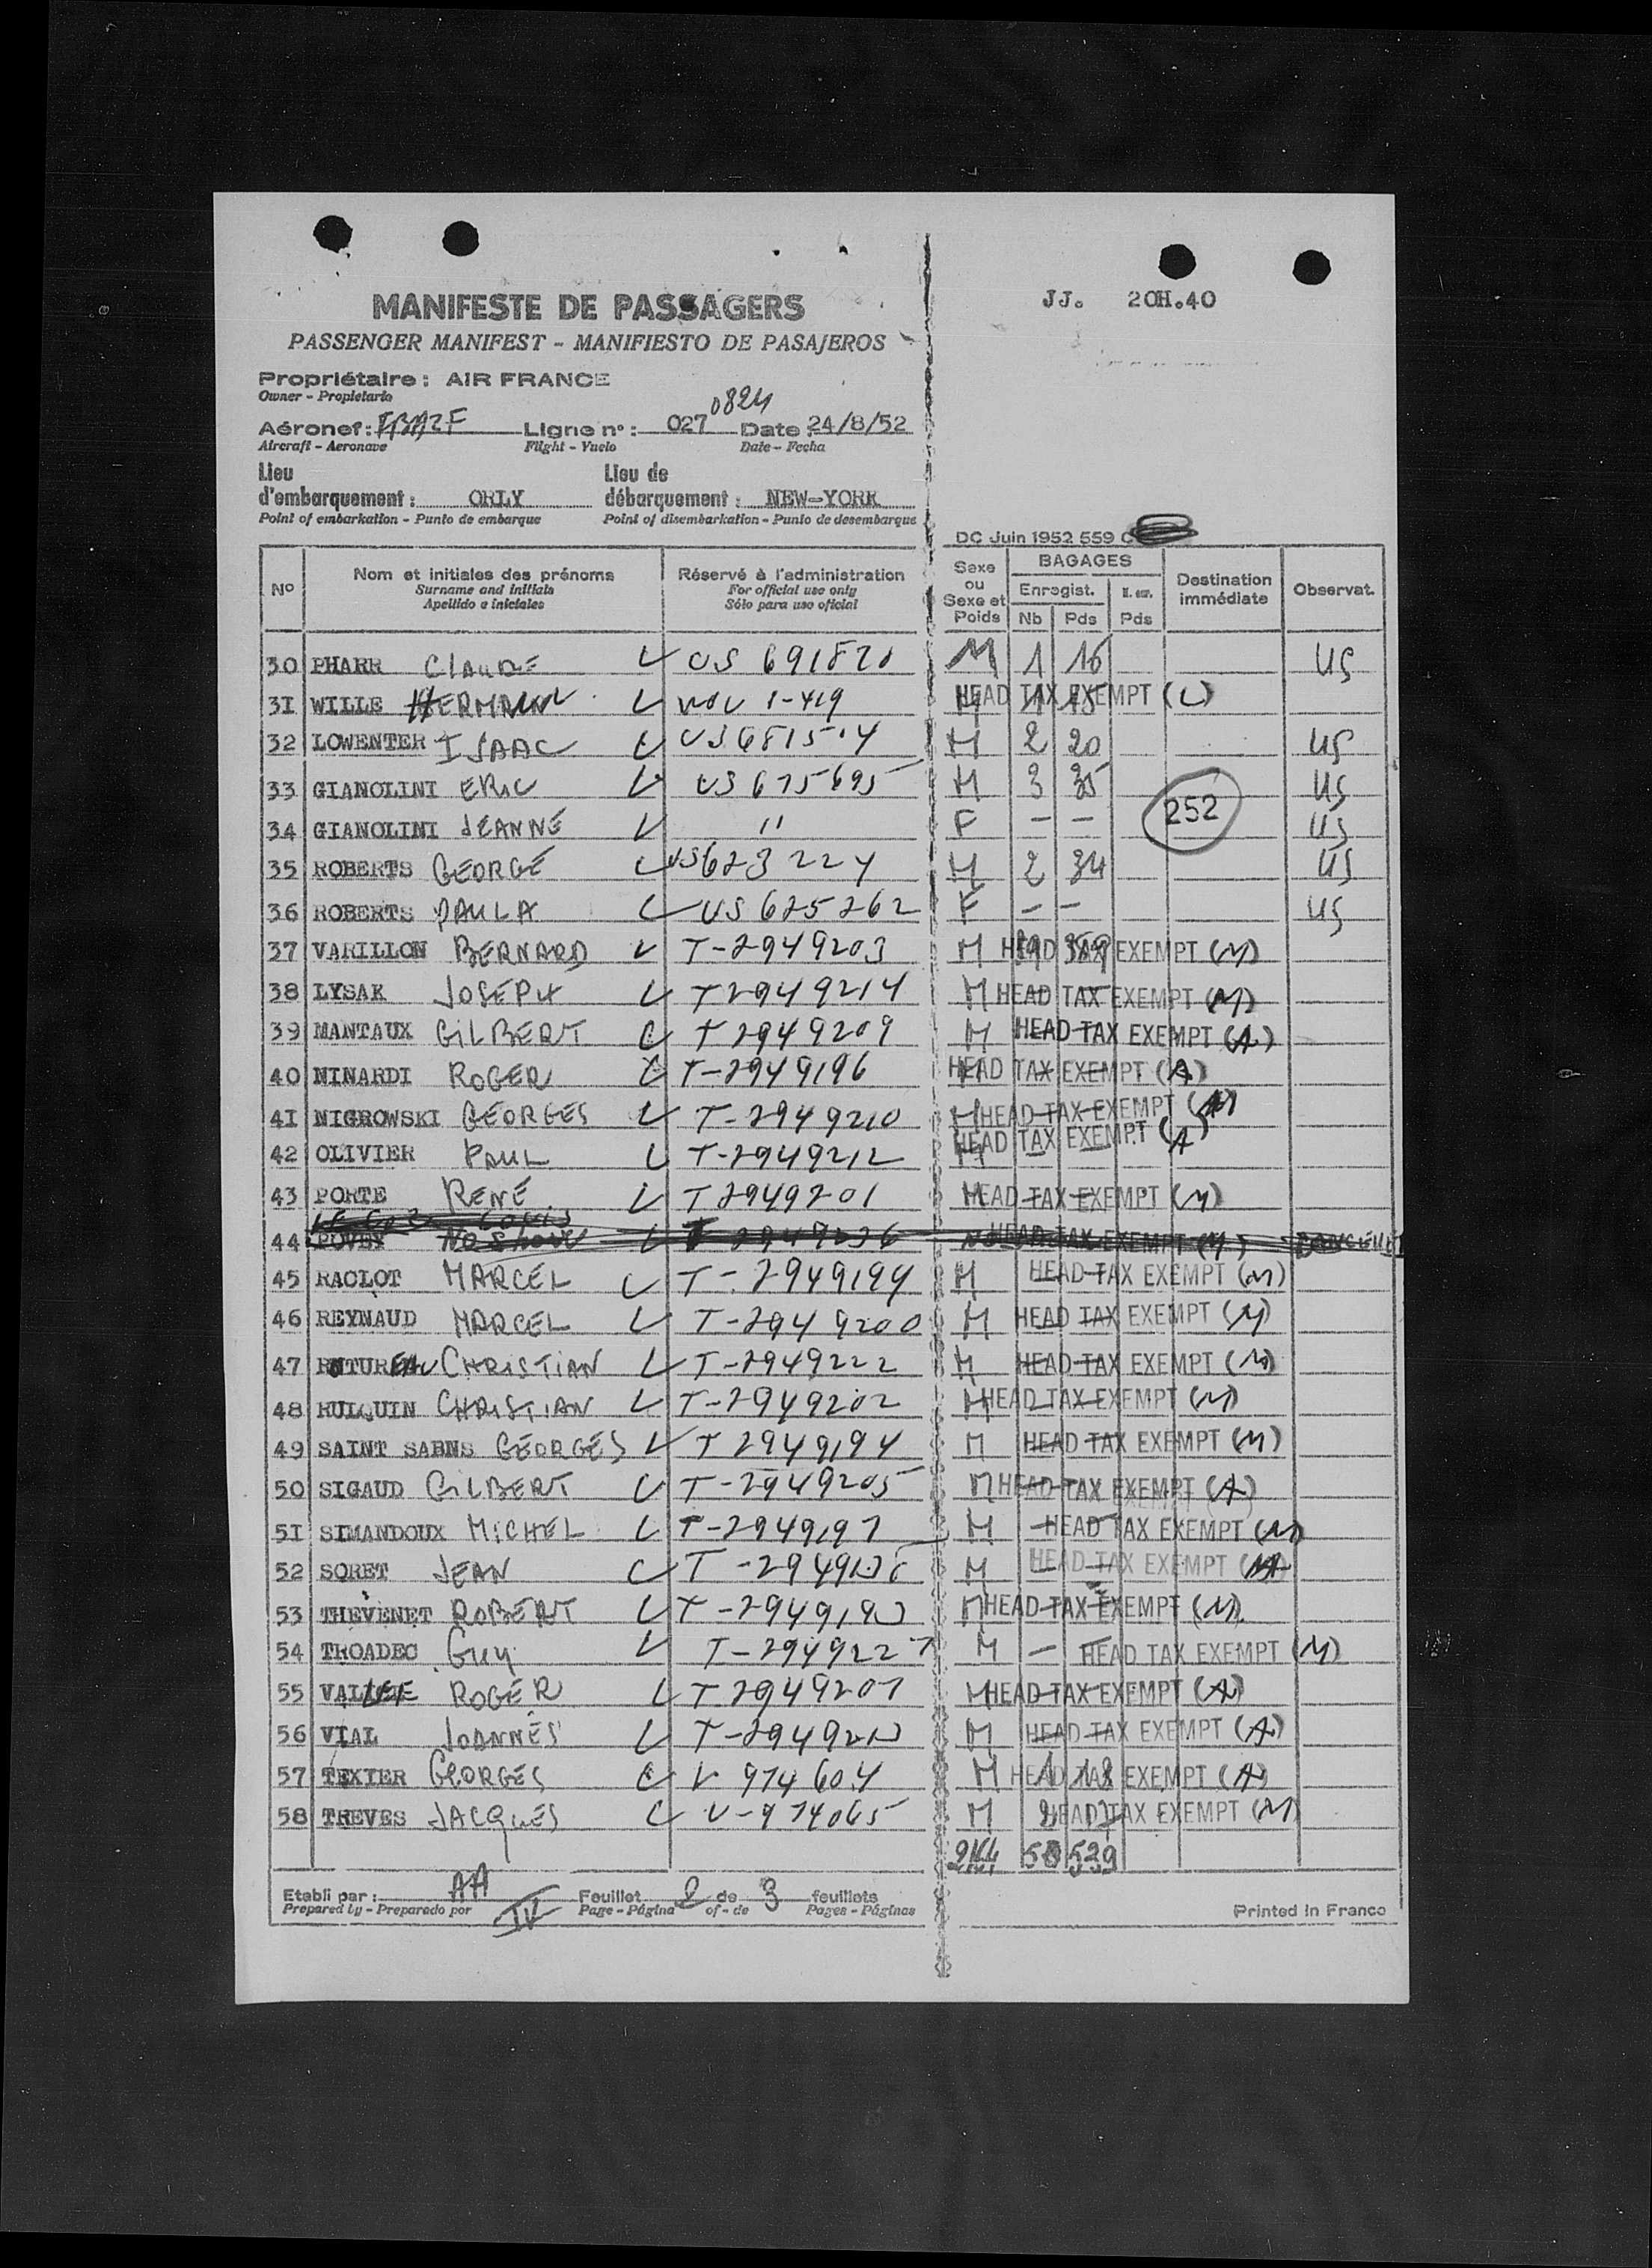 JJ. 20H.40
MANIFESTE DE PASSAGERS
PASSENGER MANIFEST - MANIFIESTO DE PASAJEROS
Propriétaire : AIR FRANCE
Owner - Propietario
0824
Aéronef : FBAZF Ligne n° : 027 Date : 24/8/52
Aircraft - Aeronave Flight - Vuelo Date - Fecha
Lieu d'embarquement : ORLY Lieu de débarquement : NEW-YORK
Point of embarkation - Punto de embarque Point of disembarkation - Punto de desembarque
DC Juin 1952 559 C
N° Nom et initiales des prénoms Réservé à l'administration Sexe ou Sexe et Poids BAGAGES Destination immédiate Observat.
Surname and initials For official use only Enregist.
Apellido e iniciales Sólo para uso oficial Nb Pds Pds
30 PHARR CLAUDE US 691820 M 1 16 US
31 WILLE HERMANN 1-419 M 1 15 HEAD TAX EXEMPT (L)
32 LOWENTER ISAAC M 2 20 US
33 GIANOLINI ERIC US 675695 M 3 35 US
34 GIANOLINI JEANNE " F - - US
252
35 ROBERTS GEORGE US 623224 M 2 34 US
36 ROBERTS PAULA US 625262 F - - US
37 VARILLON BERNARD T-2949203 M HEAD TAX EXEMPT (M)
38 LYSAK JOSEPH T 2949214 M HEAD TAX EXEMPT (M)
39 MANTAUX GILBERT T 2949209 M HEAD TAX EXEMPT (A)
40 NINARDI ROGER T-2949196 M HEAD TAX EXEMPT (A)
41 NIGROWSKI GEORGES T-2949210 M HEAD TAX EXEMPT
42 OLIVIER PAUL T-2949212 M HEAD TAX EXEMPT (A)
43 PORTE RENÉ T 2949201 M HEAD TAX EXEMPT (M)
44 POVEY NO SHOW HEAD TAX EXEMPT (M)
45 RACLOT MARCEL T-2949194 M HEAD TAX EXEMPT (M)
46 REYNAUD MARCEL T-2949200 M HEAD TAX EXEMPT (M)
47 ROTUREAU CHRISTIAN T-2949222 M HEAD TAX EXEMPT (M)
48 RULQUIN CHRISTIAN T-2949202 M HEAD TAX EXEMPT (M)
49 SAINT SAENS GEORGES T 2949194 M HEAD TAX EXEMPT (M)
50 SIGAUD GILBERT T-2949205 M HEAD TAX EXEMPT (A)
51 SIMANDOUX MICHEL T-2949197 M - HEAD TAX EXEMPT (M)
52 SORET JEAN M HEAD TAX EXEMPT
53 THEVENET ROBERT M HEAD TAX EXEMPT (M)
54 TROADEC GUY T-2949227 M - HEAD TAX EXEMPT (M)
55 VALLEE ROGER T 2949207 M HEAD TAX EXEMPT (A)
56 VIAL JOANNES M HEAD TAX EXEMPT (A)
57 TEXIER GEORGES V 974604 M 1 18 HEAD TAX EXEMPT (A)
58 TREVES JACQUES V-974065 M 2 HEAD TAX EXEMPT (M)
539
Etabli par : AA Feuillet 2 de 3 feuillets
Prepared by - Preparado por IV Page - Página of - de Pages - Páginas Printed in France